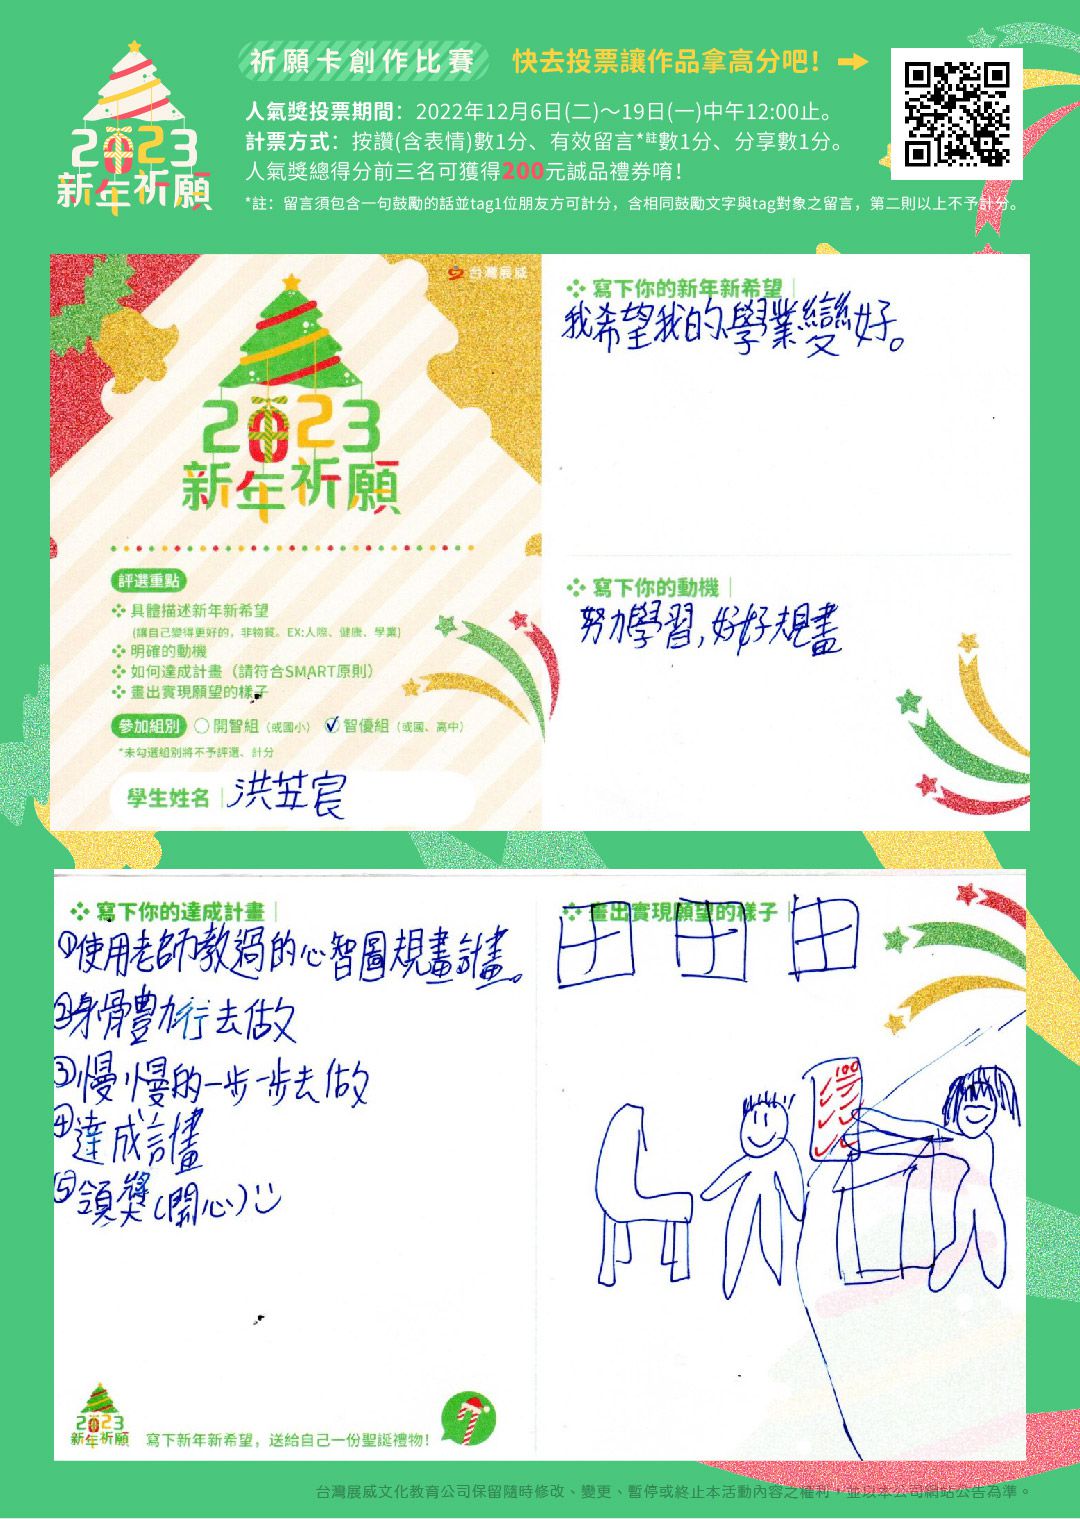 祈願卡創作比賽 快去投票讓作品拿高分吧！
人氣獎投票期間：2022年12月6日(二)～19日(一)中午12:00止。
計票方式：按讚(含表情)數1分、有效留言*註數1分、分享數1分。
人氣獎總得分前三名可獲得200元誠品禮券唷！
*註：留言須包含一句鼓勵的話並tag1位朋友方可計分，含相同鼓勵文字與tag對象之留言，第二則以上不予計分。
2023
新年祈願
台灣展威
2023
新年祈願
評選重點
具體描述新年新希望
(讓自己變得更好的，非物質。EX:人際、健康、學業)
明確的動機
如何達成計畫（請符合SMART原則）
畫出實現願望的樣子
參加組別 開智組（或國小） 智優組（或國、高中）
*未勾選組別將不予評選、計分
學生姓名 洪苙宸
寫下你的新年新希望
我希望我的學業變好。
寫下你的動機
努力學習,好好規畫
寫下你的達成計畫
①使用老師教過的心智圖規畫計畫。
②身體力行去做
③慢慢的一步一步去做
④達成計畫
⑤領獎(開心)
畫出實現願望的樣子
100
2023
新年祈願
寫下新年新希望，送給自己一份聖誕禮物！
台灣展威文化教育公司保留隨時修改、變更、暫停或終止本活動內容之權利，並以本公司網站公告為準。